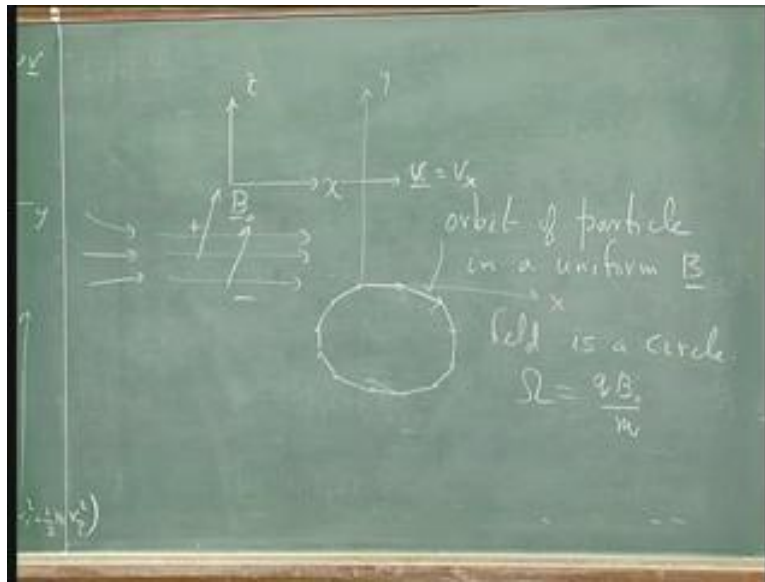 v
y
z
x
y
B₀
+
−
v = Vₓ
orbit of particle
in a uniform B
x
field is a circle.
Ω = qB₀/m